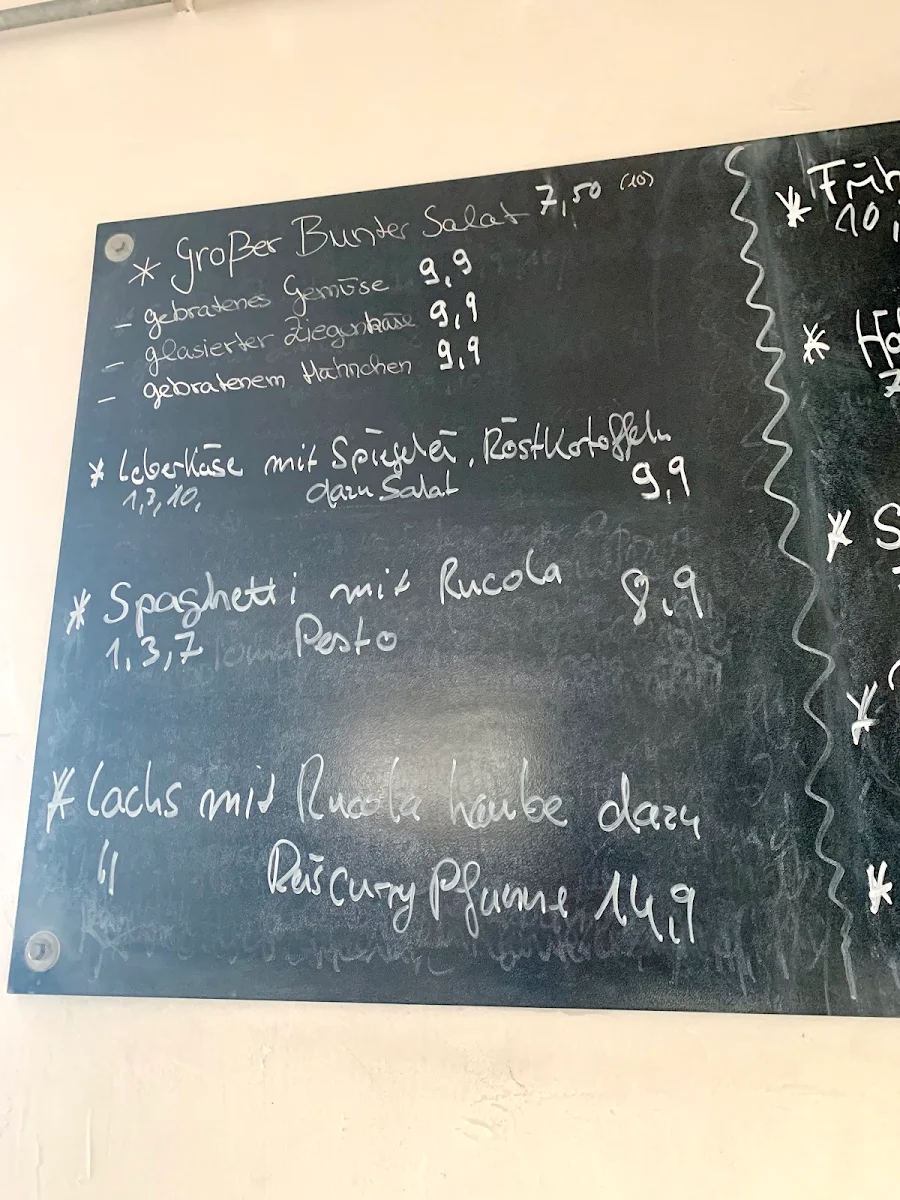 * Großer Bunter Salat 7,50 (10)
- gebratenes Gemüse 9,9
- glasierter Ziegenkäse 9,9
- gebratenem Hähnchen 9,9
* Leberkäse mit Spiegelei, Röstkotoffeln
1,3,10, dazu Salat 9,9
* Spaghetti mit Rucola 8,9
1,3,7 Pesto
* Lachs mit Rucola haube dazu
4 Reis Curry Pfanne 14,9
* Früh
10
* 
* S
*
*